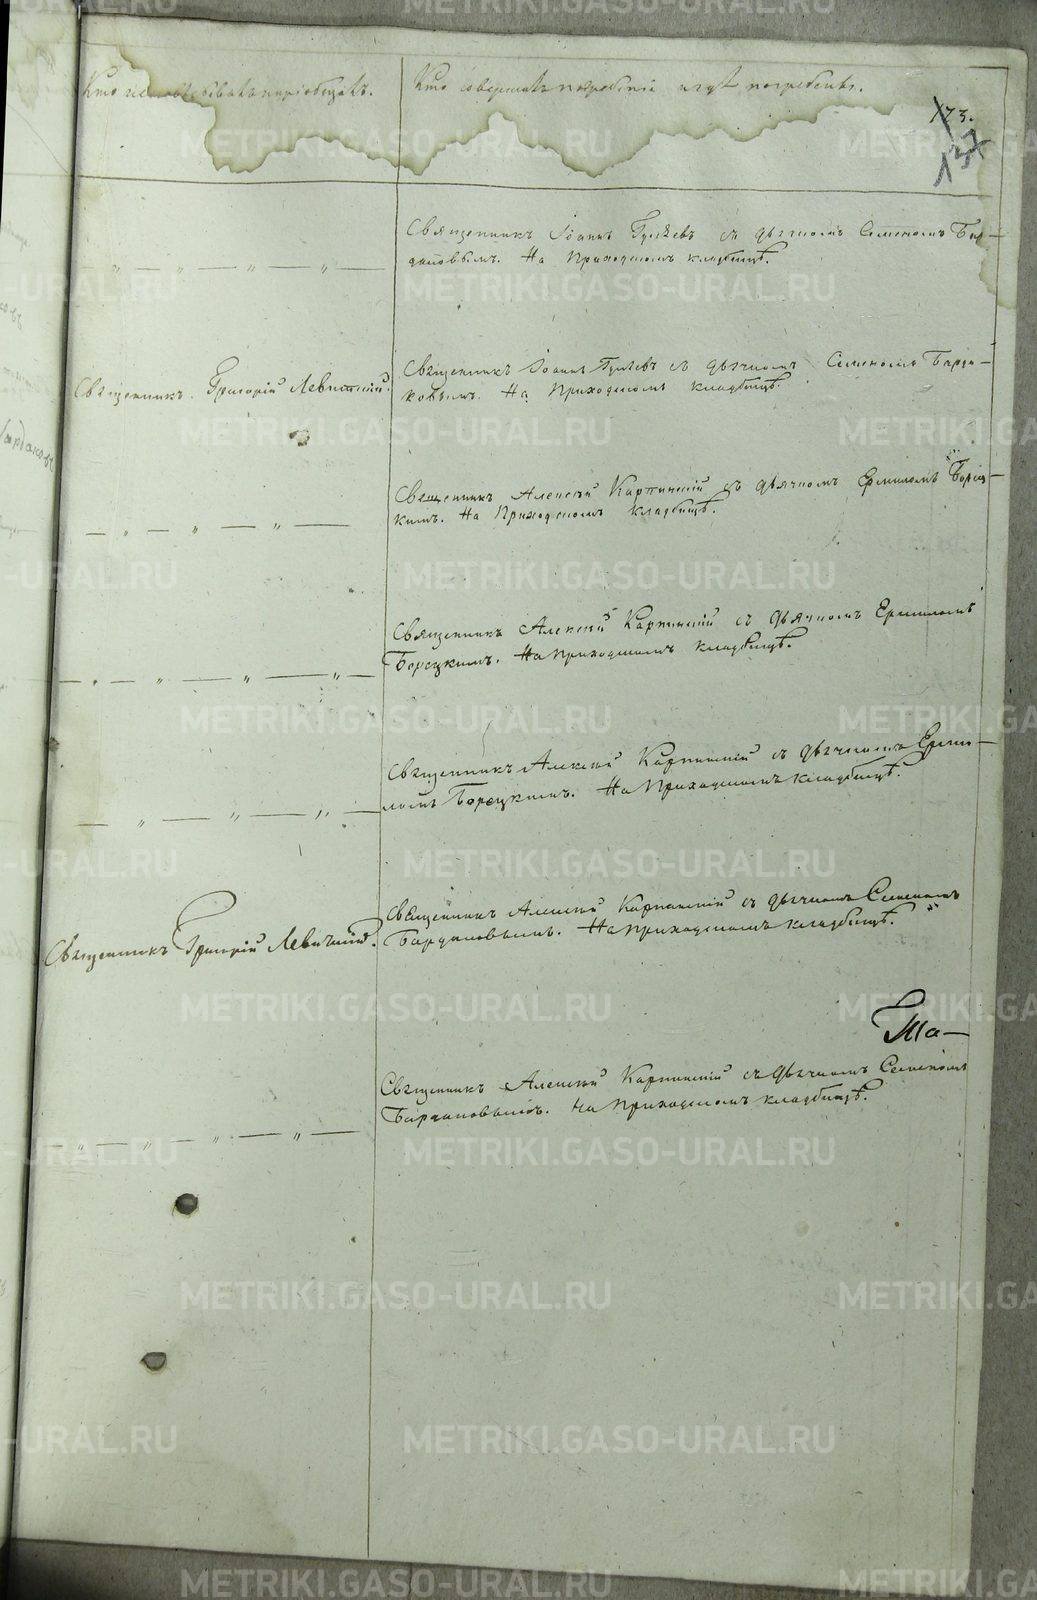 Кто исповѣдывалъ и пріобщалъ.
Кто совершалъ погребеніе и гдѣ погребенъ.
173.
137
Священникъ Іоаннъ съ дьячкомъ Семеномъ Бар-
дановымъ. На Приходскомъ кладбищѣ.
Священникъ Григорій Левитскій.
Священникъ Іоаннъ съ дьячкомъ Семеномъ
На Приходскомъ кладбищѣ.
Священникъ Алексѣй Карпинскій съ дьячкомъ Ермиломъ Борец-
кимъ. На Приходскомъ кладбищѣ.
Священникъ Алексѣй Карпинскій съ дьячкомъ Ермиломъ
Борецкимъ. На Приходскомъ кладбищѣ.
Священникъ Алексѣй Карпинскій съ дьячкомъ Ерми-
ломъ Борецкимъ. На Приходскомъ кладбищѣ.
Священникъ Григорій Левитскій.
Священникъ Алексѣй Карпинскій съ дьячкомъ Семеномъ
Бардановымъ. На Приходскомъ кладбищѣ.
Священникъ Алексѣй Карпинскій съ дьячкомъ Семеномъ
Бардановымъ. На Приходскомъ кладбищѣ.
METRIKI.GASO-URAL.RU